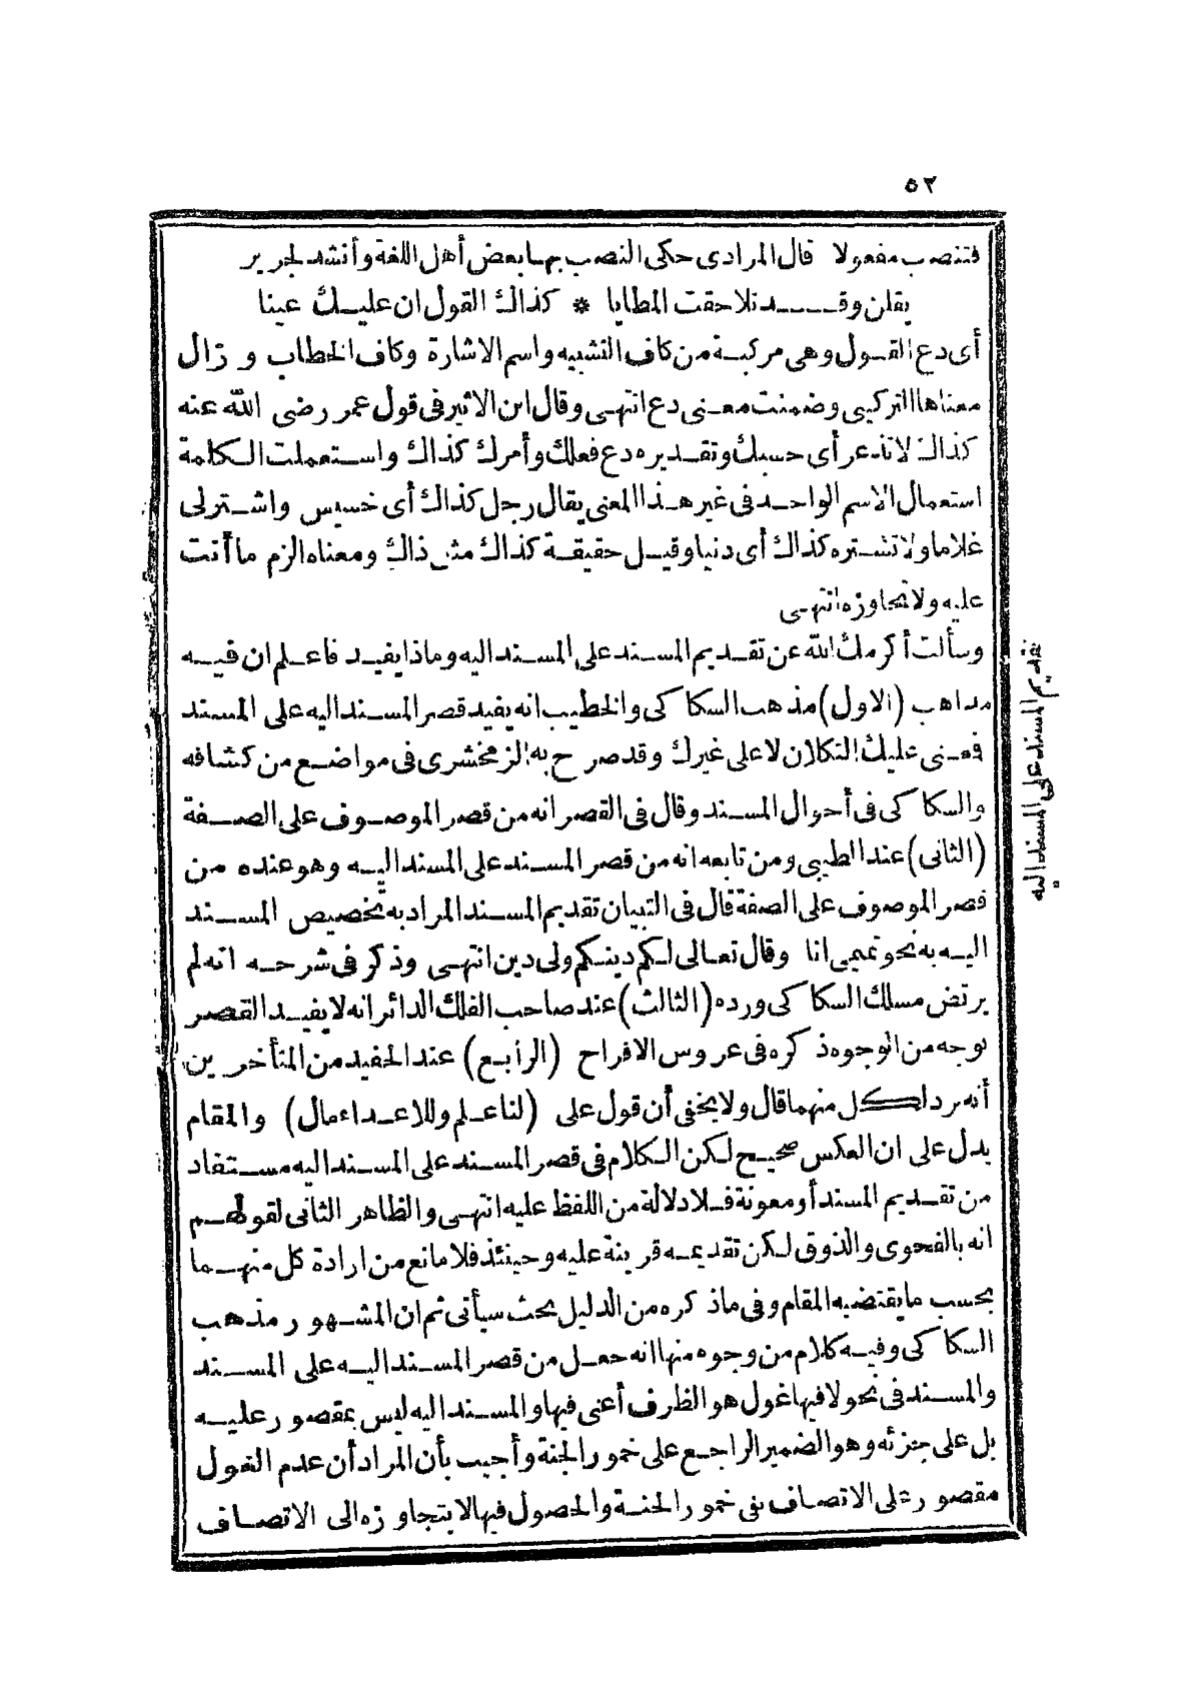 ٥٢
فتنصب مفعولا قال المرادى حكى النصب بها بعض أهل اللغة وأنشد لجرير
يقلن وقد تلاحقت المطايا * كذاك القول ان عليك عينا
أى دع القول وهى مركبة من كاف التشبيه واسم الاشارة وكاف الخطاب و زال
معناها التركيبى وضمنت معنى دع انتهى وقال ابن الاثير فى قول عمر رضى الله عنه
كذاك لا تذعر أى حسبك وتقديره دع فعلك وأمرك كذاك واستعملت الكلمة
استعمال الاسم الواحد فى غير هذا المعنى يقال رجل كذاك أى خسيس واشترلى
غلاما ولا تشتره كذاك أى دنيا وقيل حقيقة كذاك مثل ذاك ومعناه الزم ما أنت
عليه ولا تجاوزه انتهى
وسألت أكرمك الله عن تقديم المسند على المسند اليه وماذا يفيد فاعلم ان فيه
مذاهب (الاول) مذهب السكاكى والخطيب انه يفيد قصر المسند اليه على المسند
فمعنى عليك التكلان لا على غيرك وقد صرح به الزمخشرى فى مواضع من كشافه
والسكاكى فى أحوال المسند وقال فى القصر انه من قصر الموصوف على الصفة
(الثانى) عند الطيبى ومن تابعه انه من قصر المسند على المسند اليه وهو عنده من
قصر الموصوف على الصفة قال فى التبيان تقديم المسند المراد به تخصيص المسند
اليه به نحو تميمى انا وقال تعالى لكم دينكم ولى دين انتهى وذكر فى شرحه انه لم
يرتض مسلك السكاكى ورده (الثالث) عند صاحب الفلك الدائر انه لا يفيد القصر
بوجه من الوجوه ذكره فى عروس الافراح (الرابع) عند الحفيد من المتأخرين
أنه يرد لكل منهما قال ولا يخفى أن قول على (لنا علم وللاعداء مال) والمقام
يدل على ان العكس صحيح لكن الكلام فى قصر المسند على المسند اليه مستفاد
من تقديم المسند أو معونة فلا دلالة من اللفظ عليه انتهى والظاهر الثانى لقولهم
انه بالفحوى والذوق لكن تقديمه قرينة عليه وحينئذ فلا مانع من ارادة كل منهما
بحسب ما يقتضيه المقام وفى ما ذكره من الدليل بحث سيأتى ثم ان المشهور مذهب
السكاكى وفيه كلام من وجوه منها انه جعل من قصر المسند اليه على المسند
والمسند فى نحو لا فيها غول هو الظرف أعنى فيها والمسند اليه ليس بمقصور عليه
بل على جزئه وهو الضمير الراجع على خمور الجنة وأجيب بأن المراد أن عدم الغول
مقصور على الاتصاف بفى خمور الجنة والحصول فيها لا يتجاوزه الى الاتصاف
تقديم المسند على المسند اليه